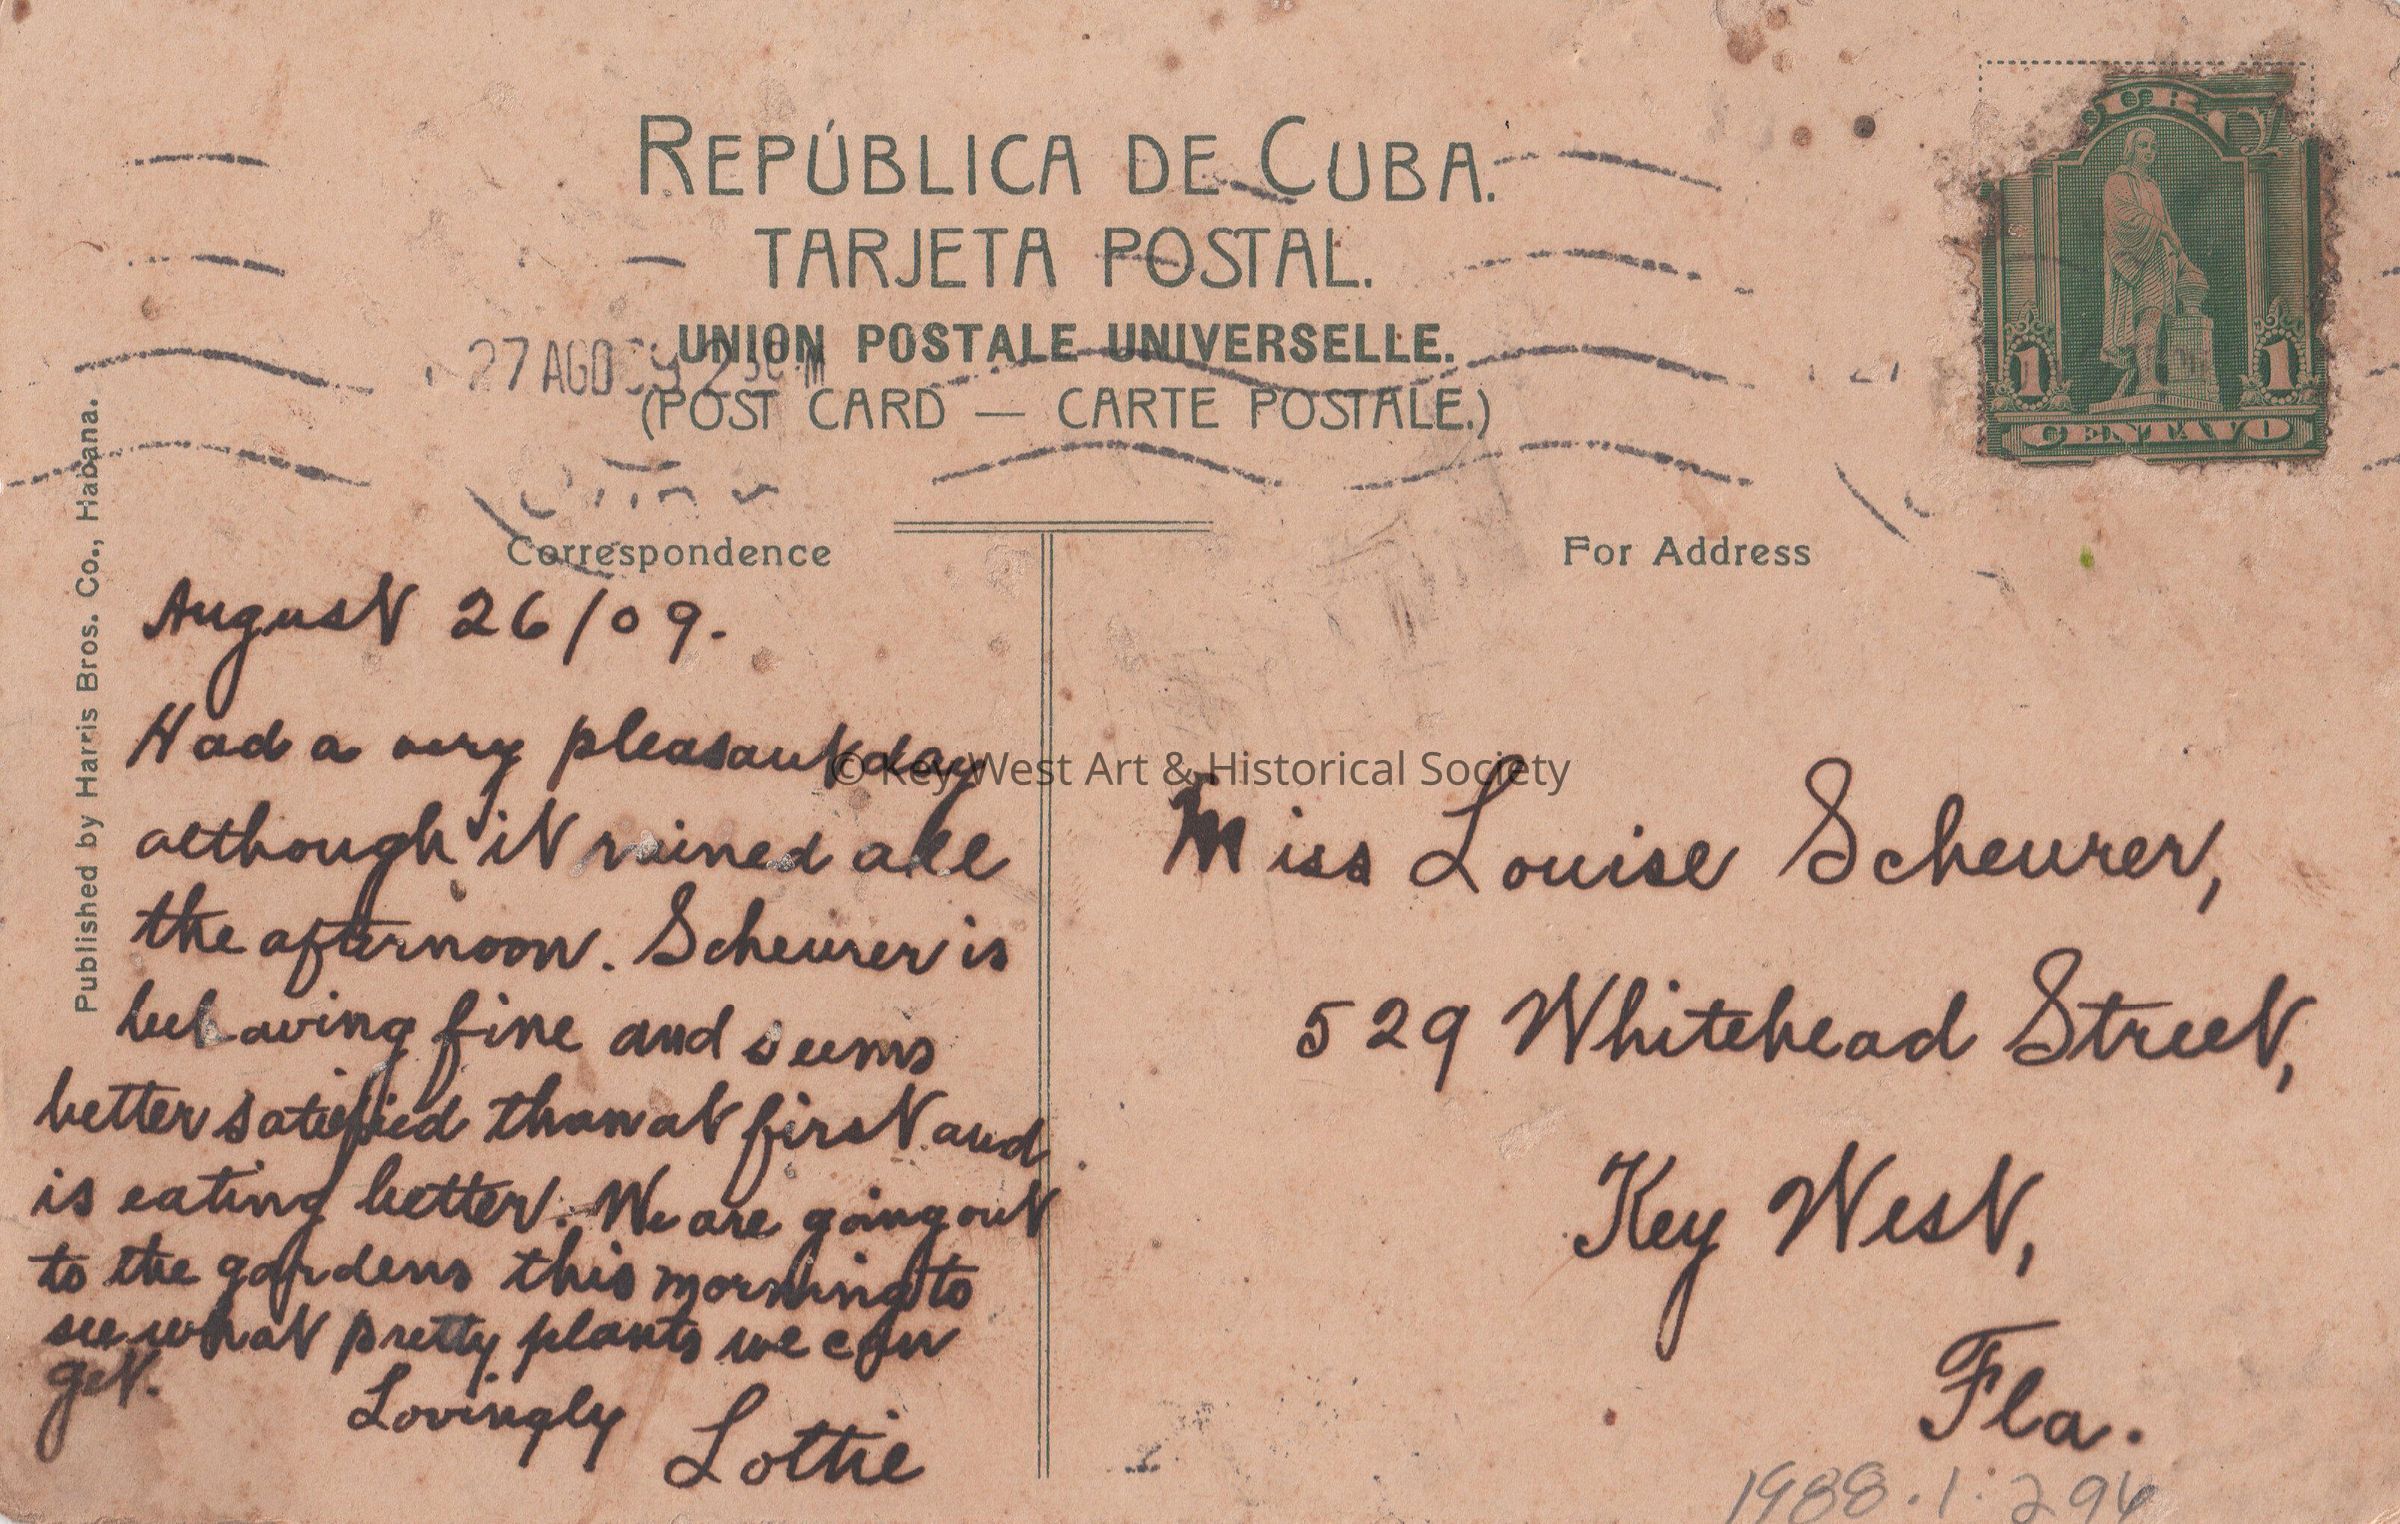 REPÚBLICA DE CUBA.
TARJETA POSTAL.
UNION POSTALE UNIVERSELLE.
27 AGO
(POST CARD — CARTE POSTALE.)
1 1
CENTAVO
Published by Harris Bros. Co., Habana.
Correspondence
August 26/09.
Had a very pleasant day
although it rained all
the afternoon. Scheurer is
behaving fine and seems
better satisfied than at first and
is eating better. We are going out
to the gardens this morning to
see what pretty plants we can
get.
Lovingly
Lottie
For Address
© Key West Art & Historical Society
Miss Louise Scheurer,
529 Whitehead Street,
Key West,
Fla.
1988.1.296